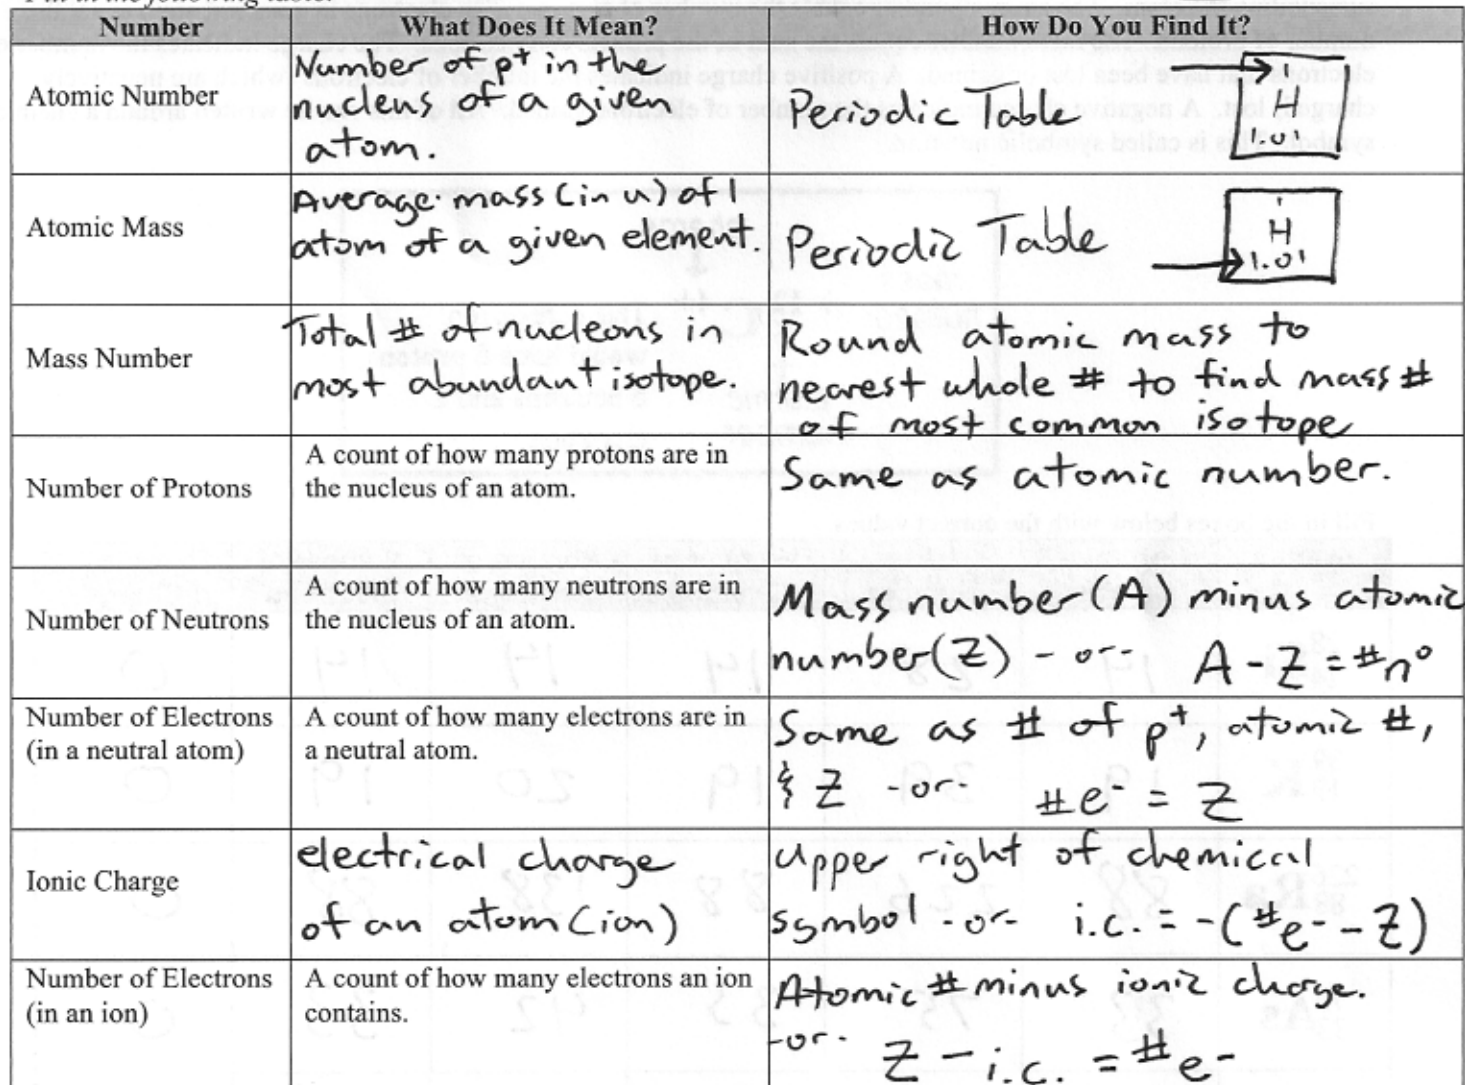 Fill in the following table.
Number What Does It Mean? How Do You Find It?
Atomic Number
Number of p⁺ in the
nucleus of a given
atom.
Periodic Table
1
H
1.01
Atomic Mass
Average mass (in u) of 1
atom of a given element.
Periodic Table
1
H
1.01
Mass Number
Total # of nucleons in
most abundant isotope.
Round atomic mass to
nearest whole # to find mass #
of most common isotope
Number of Protons
A count of how many protons are in
the nucleus of an atom.
Same as atomic number.
Number of Neutrons
A count of how many neutrons are in
the nucleus of an atom.
Mass number (A) minus atomic
number (Z) -or- A - Z = #n⁰
Number of Electrons
(in a neutral atom)
A count of how many electrons are in
a neutral atom.
Same as # of p⁺, atomic #,
& Z -or- #e⁻ = Z
Ionic Charge
electrical charge
of an atom (ion)
Upper right of chemical
symbol -or- i.c. = -(#e⁻ - Z)
Number of Electrons
(in an ion)
A count of how many electrons an ion
contains.
Atomic # minus ionic charge.
-or- Z - i.c. = #e⁻